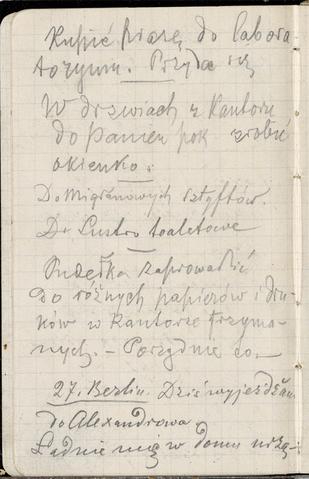 Kupić prasę do labora
toryum. Przyda się
W drzwiach z Kantoru
do Panien pok zrobić
okienko.
Do Migrenowych sztyftów.
Dr Lustro toaletowe
Pudełka zaprowadzić
do różnych papierów i dru-
ków w Kantorze trzyma-
nych. – Porządnie co.
27. Berlin. Dziś wyjeżdżam
do Alexandrowa
Ładnie w domu